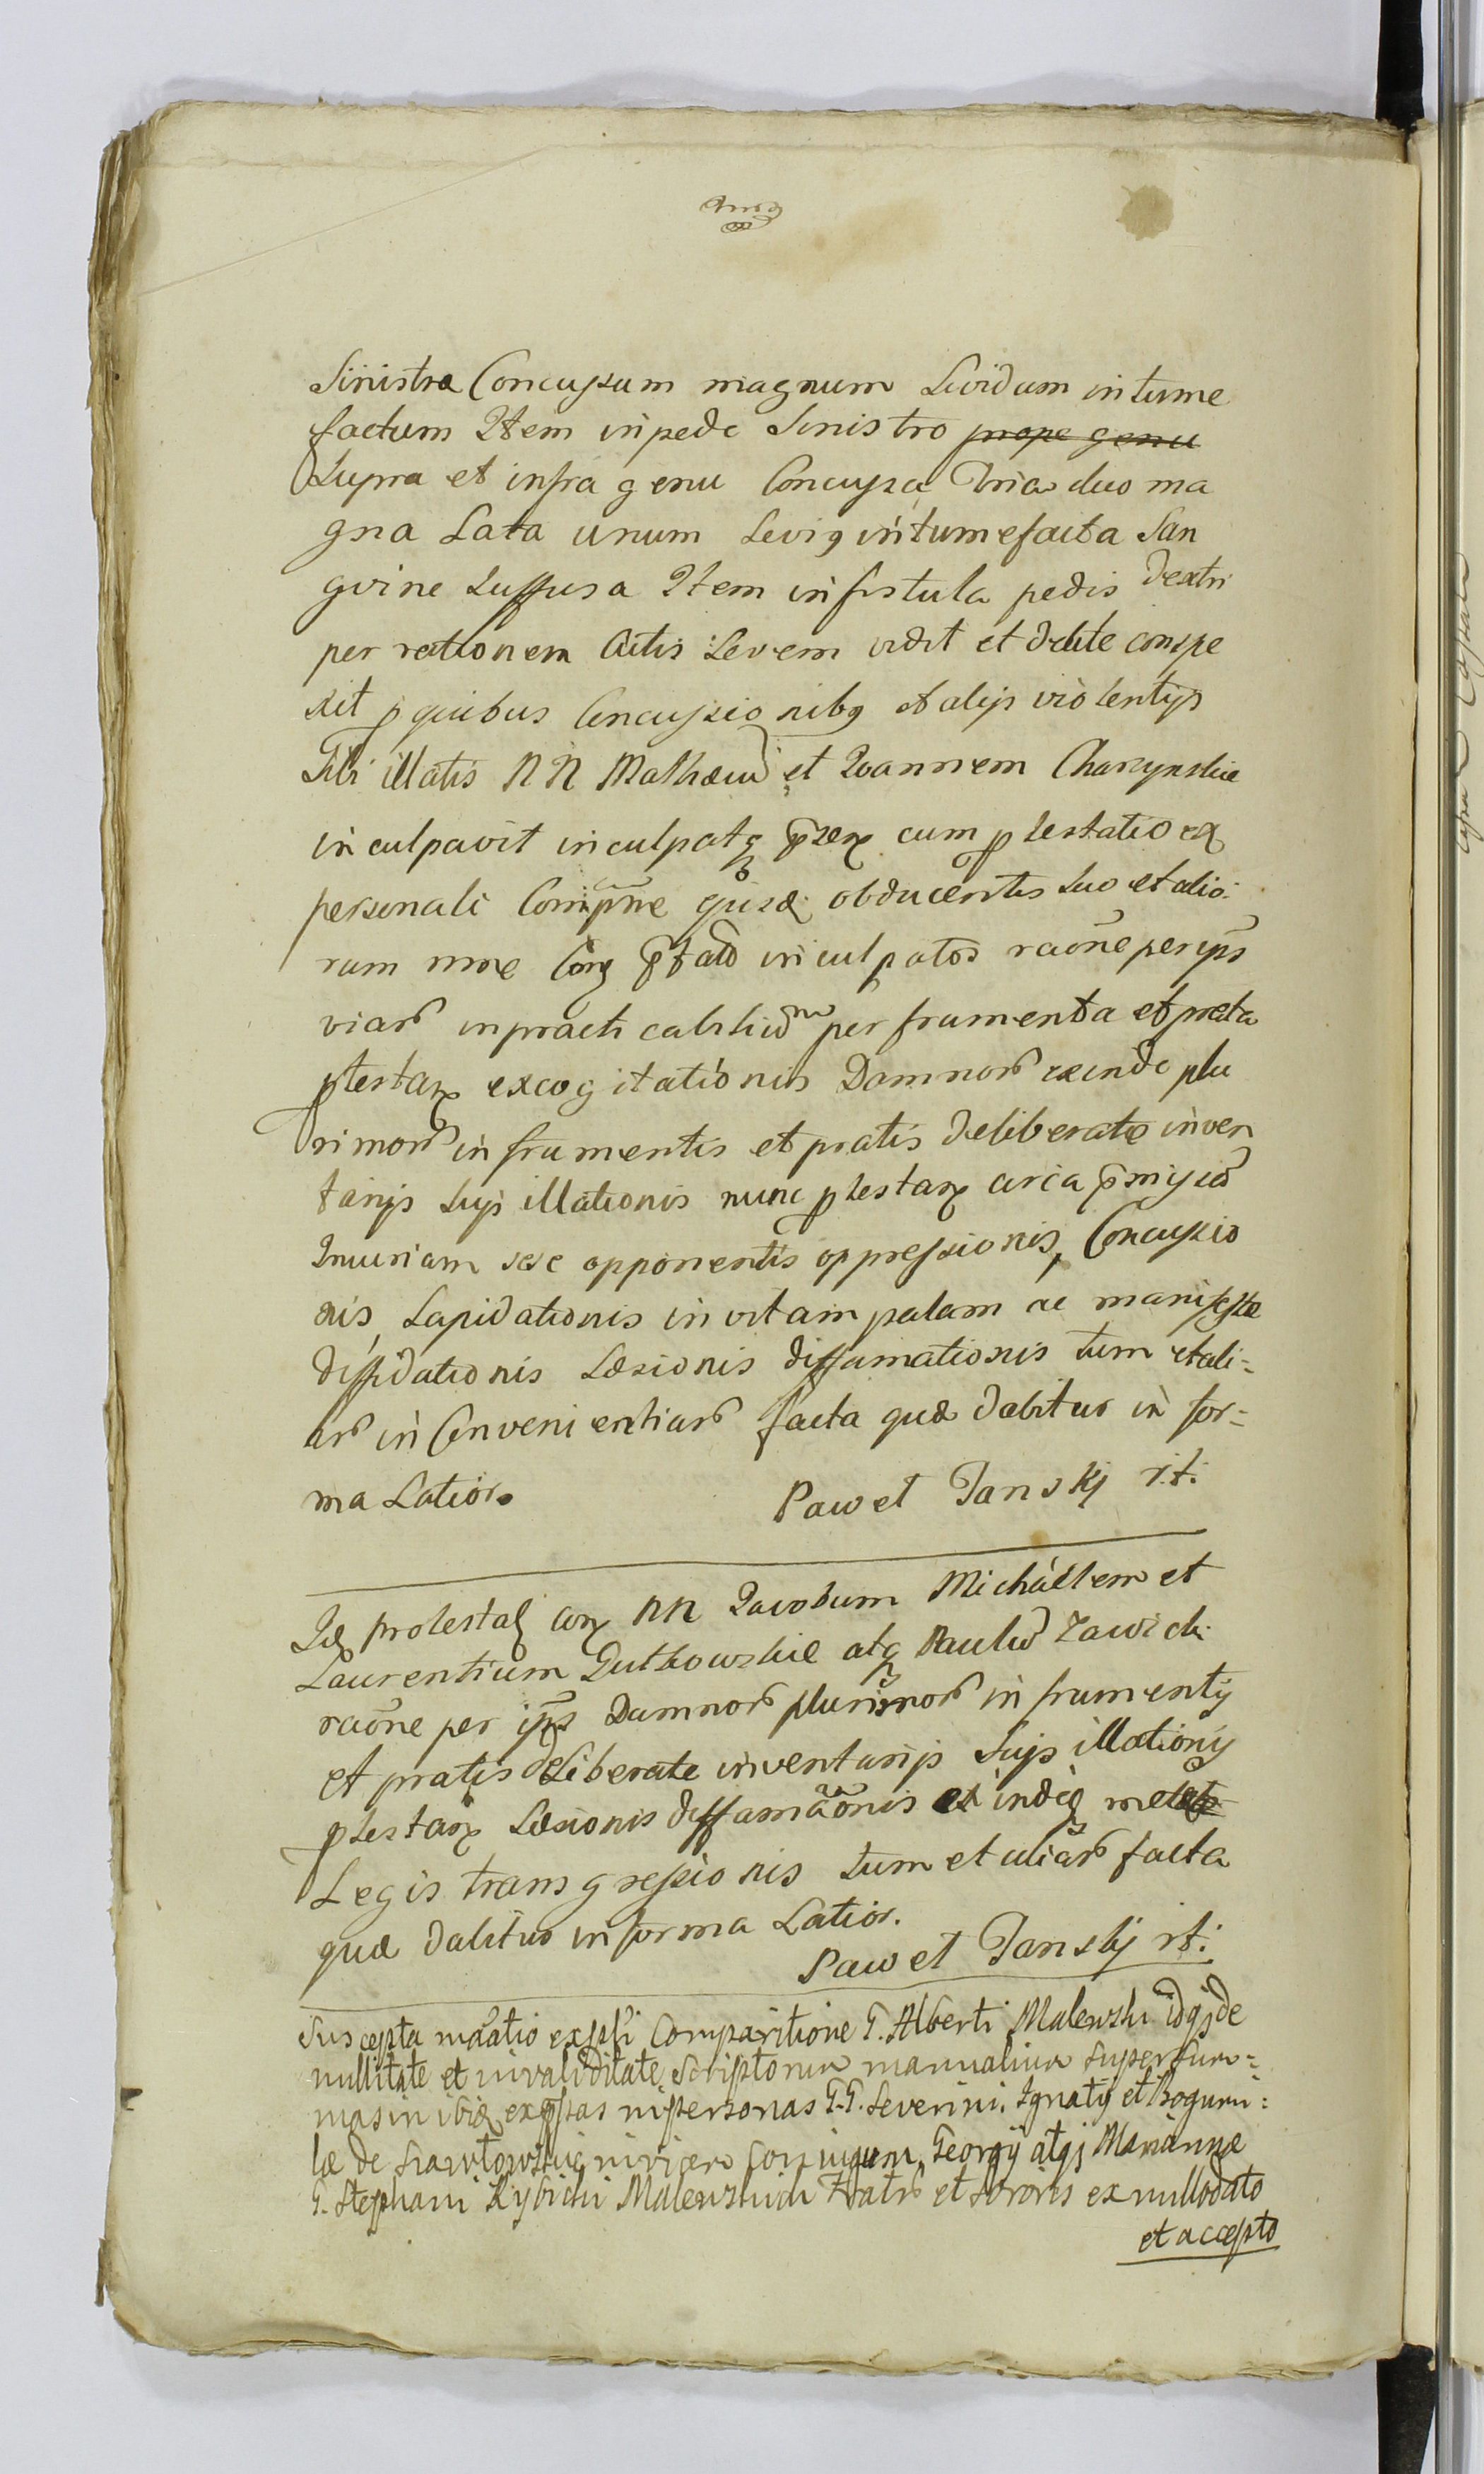 Sinistra Concussum magnum Lividum intume
factum Item in pede Sinistro prope genu
Supra et infra genu Concussa tria duo ma
gna Lata unum Levig intumefacta San
gvine Suffusa Item in fistula pedis dextri
per rationem Cutis Levem vidit et debite conspe
xit p quibus Concussionibg et alijs violentijs
Sibi illatis NN Mathæum et Ioannem Charzynskie
inculpavit inculpatq cum ptestatio ex
personali obducentis suo et alio:
rum inculpatos raõne per ipõs
viarũ inpracticabiliũm per frumenta et prata
ptestanx excogitationis Damnorũ exinde plu
rimorũ in frumentis et pratis deliberate inven
tarijs Sujs illationis nunc ptestanx circa
Iniuriam sese opponentis oppressionis, Concussio
nis, Lapidationis in vitam palam ac manifeste
diffidationis Læsionis diffamationis tum et ali=
arũ in Convenientiarũ facta quæ dabitur in for=
ma Latior.
Paweł Janskj r.t.
Id protestaĩ con NN Iacobum Michäelem et
Laurentium Gutkowskie atq Paulũ Zawick:
raõne per ipõs Damnorũ plurimorũ in frumentis
et pratis deliberate inventarijs Sujs illationis
ptestanx Læsionis diffamaõnis et indeq
Legis transgressionis tum et aliarũ facta
quæ dabitur in forma Latior.
Paweł Janskj rt:
Suscepta Comparitione G. Alberti Malewski idq de
nullitate et invaliditate Scriptorum manualium super Sum=
mas in ibiq in personas G.G. Severini, Ignatij et Bogumi:
læ de Conjugum, Georgij atq Mariannæ
G. Stephani Rybicki Malewskich Fratrũ et Sororis ex nullo dato
et accepto